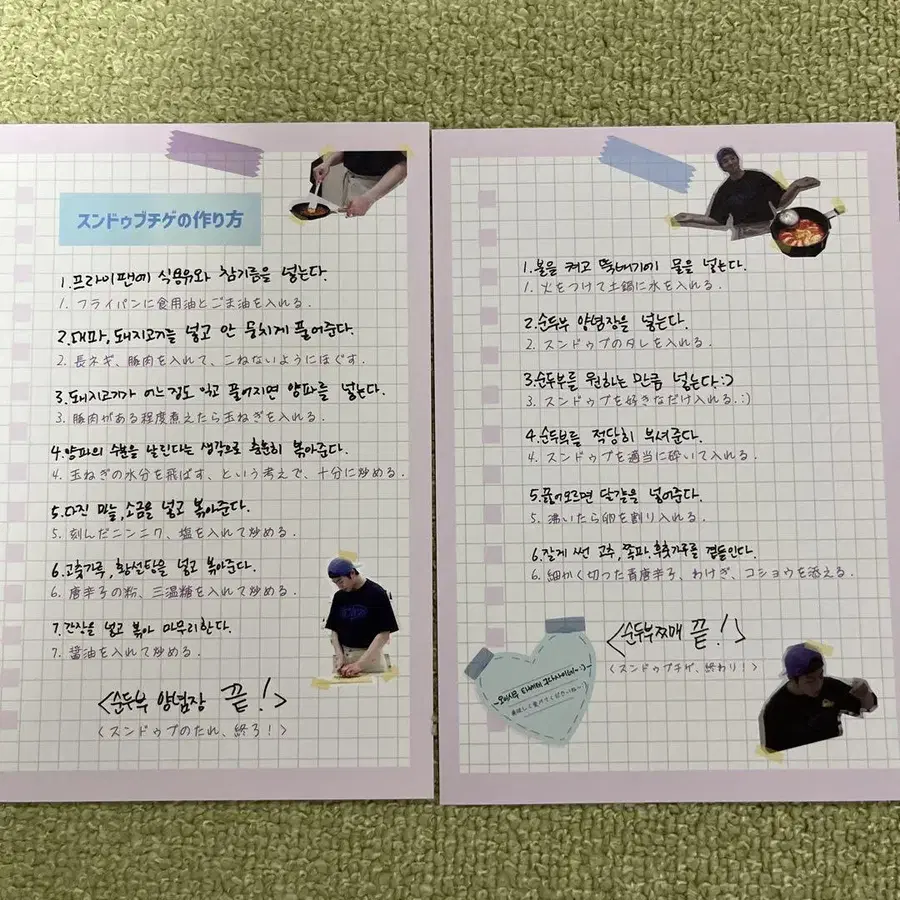 スンドゥブチゲの作り方
1.프라이팬에 식용유와 참기름을 넣는다.
1. フライパンに食用油とごま油を入れる.
2.대파,돼지고기는 넣고 안 뭉치게 풀어준다.
2. 長ネギ、豚肉を入れて、こねないようにほぐす.
3.돼지고기가 어느정도 익고 풀어지면 양파를 넣는다.
3. 豚肉がある程度煮えたら玉ねぎを入れる.
4.양파의 수분을 날린다는 생각으로 충분히 볶아준다.
4. 玉ねぎの水分を飛ばす、という考えで、十分に炒める.
5.다진 마늘,소금을 넣고 볶아준다.
5. 刻んだニンニク、塩を入れて炒める.
6.고춧가루,황설탕을 넣고 볶아준다.
6. 唐辛子の粉、三温糖を入れて炒める.
7.간장을 넣고 볶아 마무리한다.
7. 醤油を入れて炒める.
<순두부 양념장 끝!>
〈スンドゥブのたれ、終ろ!〉
1.불을 켜고 뚝배기에 물을 넣는다.
1. 火をつけて土鍋に水を入れる.
2.순두부 양념장을 넣는다.
2. スンドゥブのタレを入れる.
3.순두부를 원하는 만큼 넣는다:)
3. スンドゥブを好きなだけ入れる.:)
4.순두부를 적당히 부셔준다.
4. スンドゥブを適当に砕いて入れる.
5.끓어오르면 달걀을 넣어준다.
5. 沸いたら卵を割り入れる.
6.잘게 썬 고추,쪽파,후춧가루를 곁들인다.
6. 細かく切った青唐辛子、わけぎ、コショウを添える.
<순두부찌개 끝!>
〈スンドゥブチゲ、終わり!〉